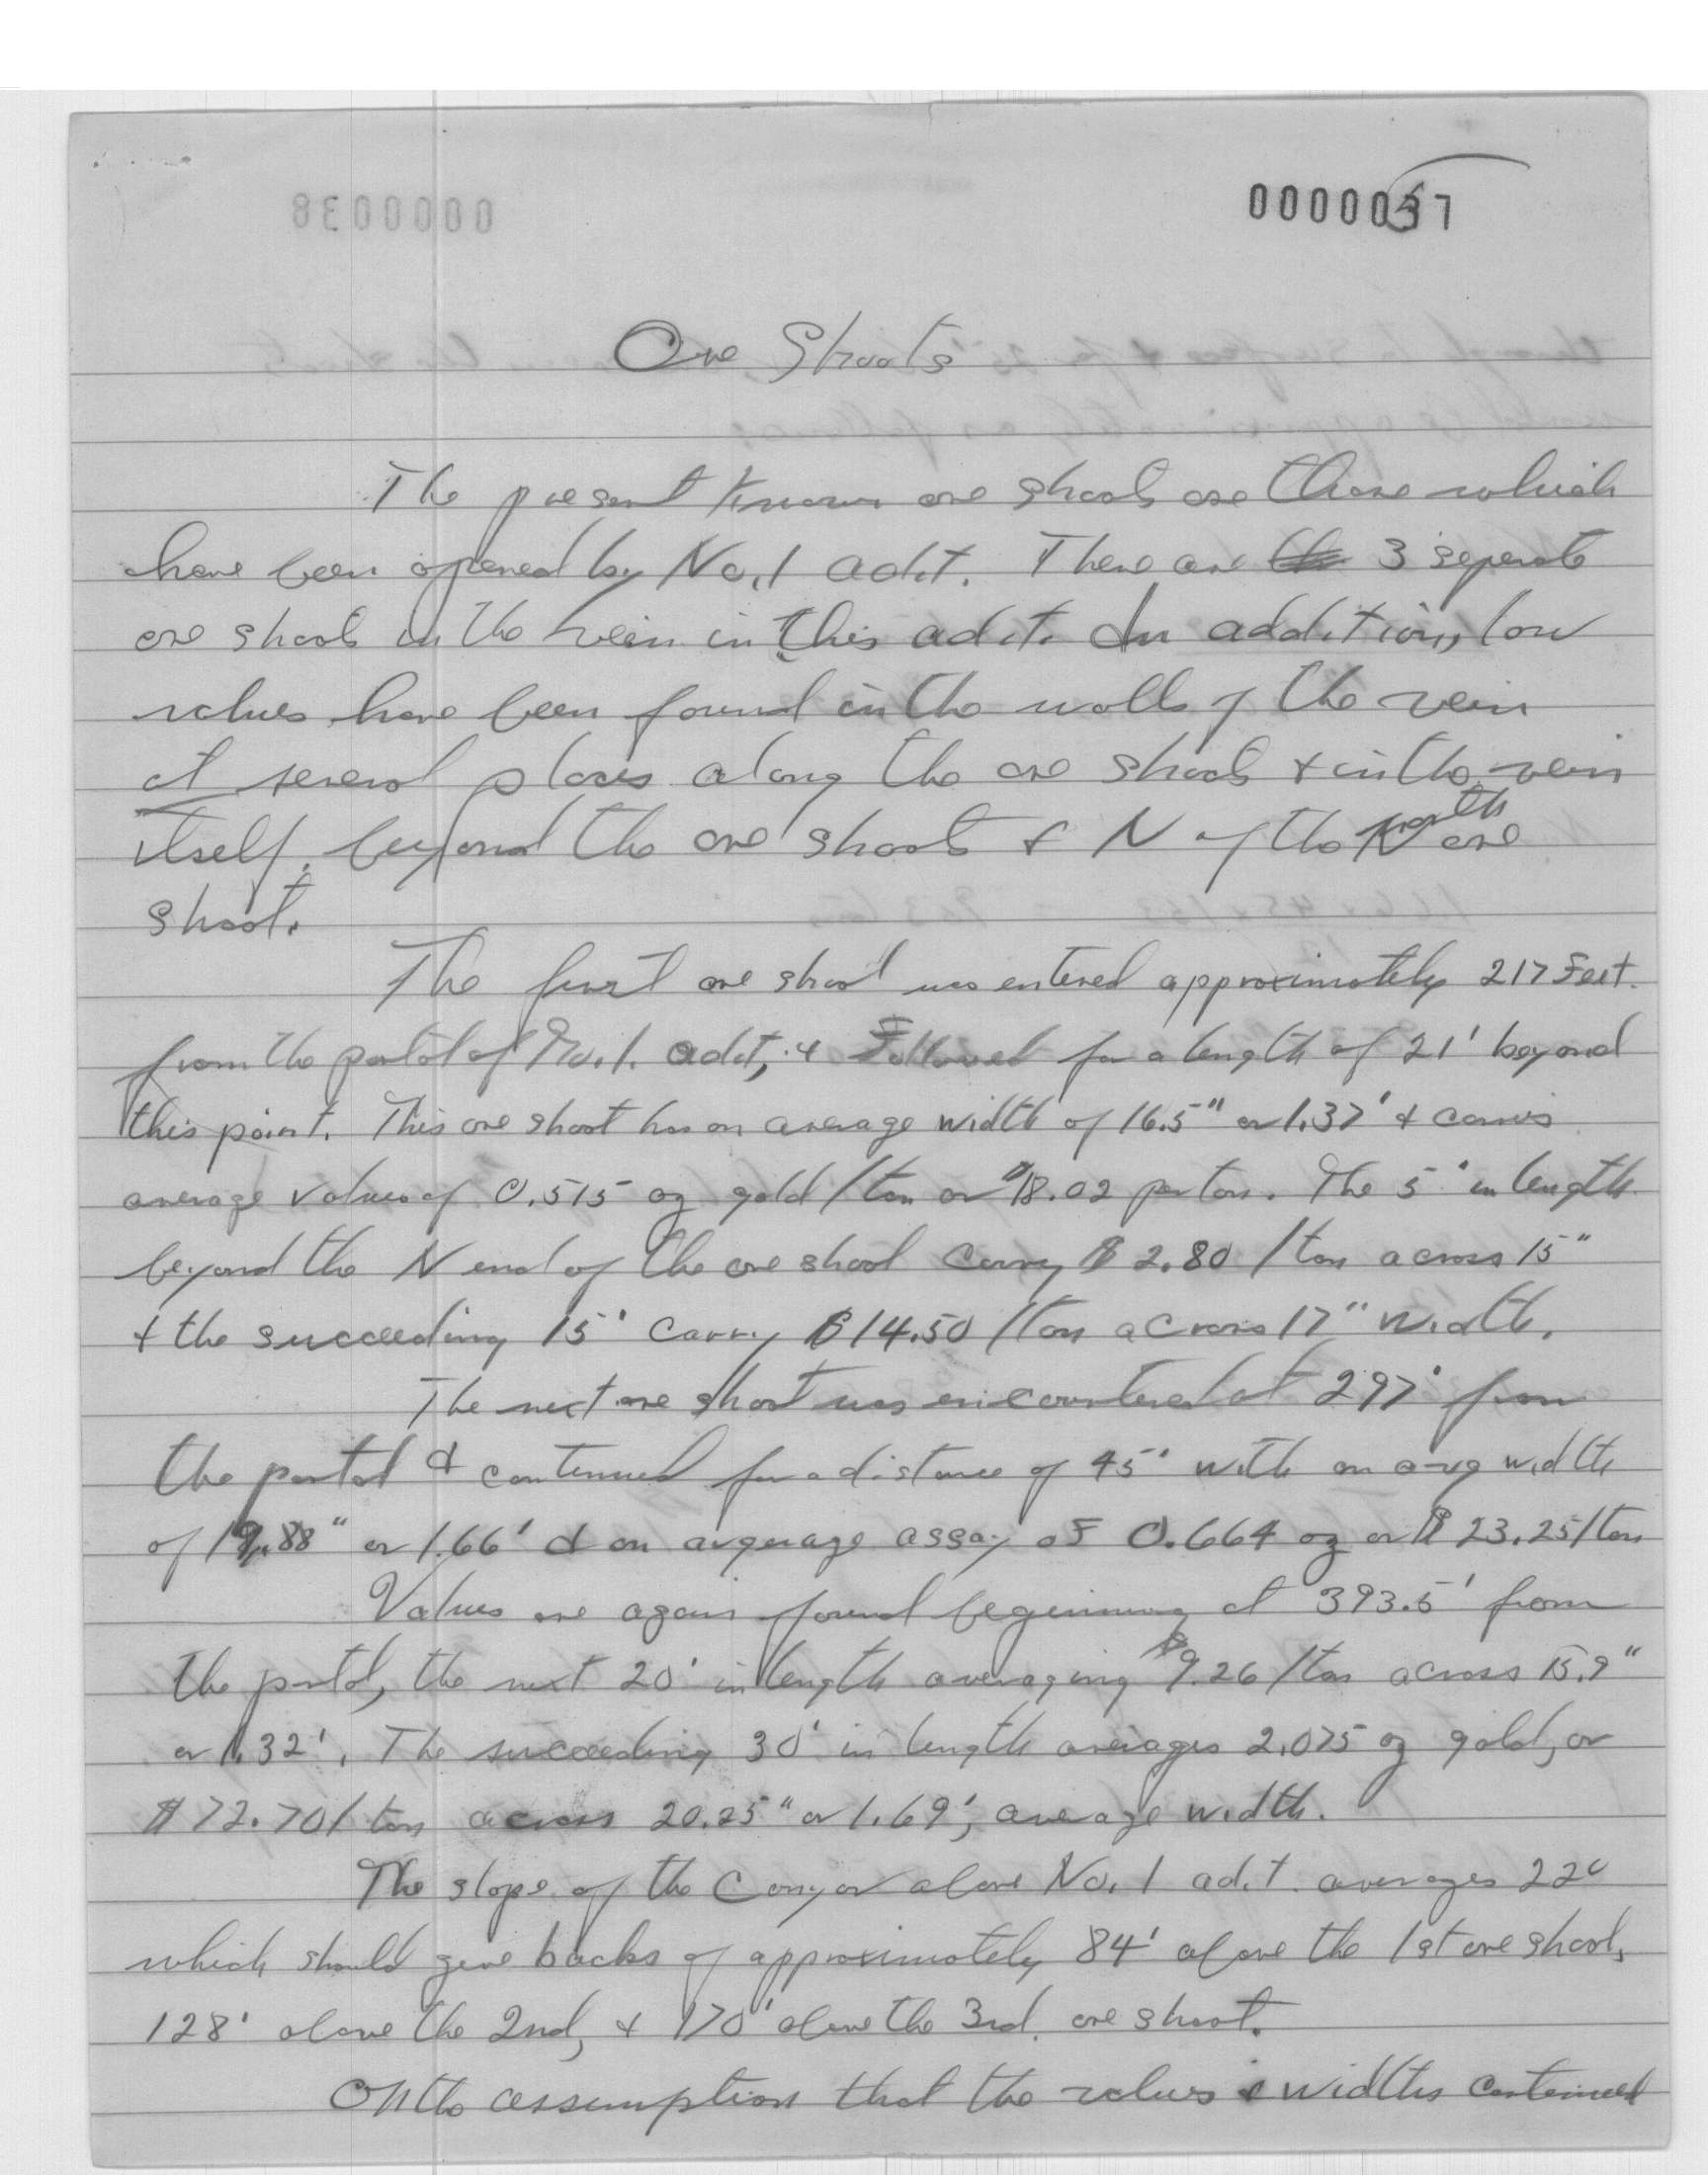 0000037
Ore Shoots
The present known ore shoots are those which
have been opened by No. 1 adit. There are 3 seperate
ore shoots in the vein in this adit. In addition, low
values have been found in the walls of the vein
at several places along the ore shoots & in the vein
itself, beyond the ore shoots & N of the North ore
shoot.
The first ore shoot was entered approximately 217 Feet
from the portal of No. 1. adit, & Followed for a length of 21' beyond
this point. This ore shoot has an average width of 16.5" or 1.37' & carries
average values of 0.515 oz gold/ton or $18.02 per ton. The 5' in length
beyond the N end of the ore shoot carry $2.80/ton across 15"
& the succeeding 15' carry $14.50/ton across 17" width.
The next ore shoot was encountered at 297' from
the portal & continued for a distance of 45' with an avg width
of 19.88" or 1.66' & an avgerage assay of 0.664 oz or $23.25/ton
Values are again found beginning at 393.5' from
the portal, the next 20' in length averaging $9.26/ton across 15.9"
or 1.32'. The succeeding 30' in length averages 2.075 oz gold, or
$72.70/ton across 20.25" or 1.69', average width.
The slope of the Canyon above No. 1 adit averages 22°
which should give backs of approximately 84' above the 1st ore shoot,
128' above the 2nd, & 170' above the 3rd. ore shoot.
On the assumption that the values & widths continued